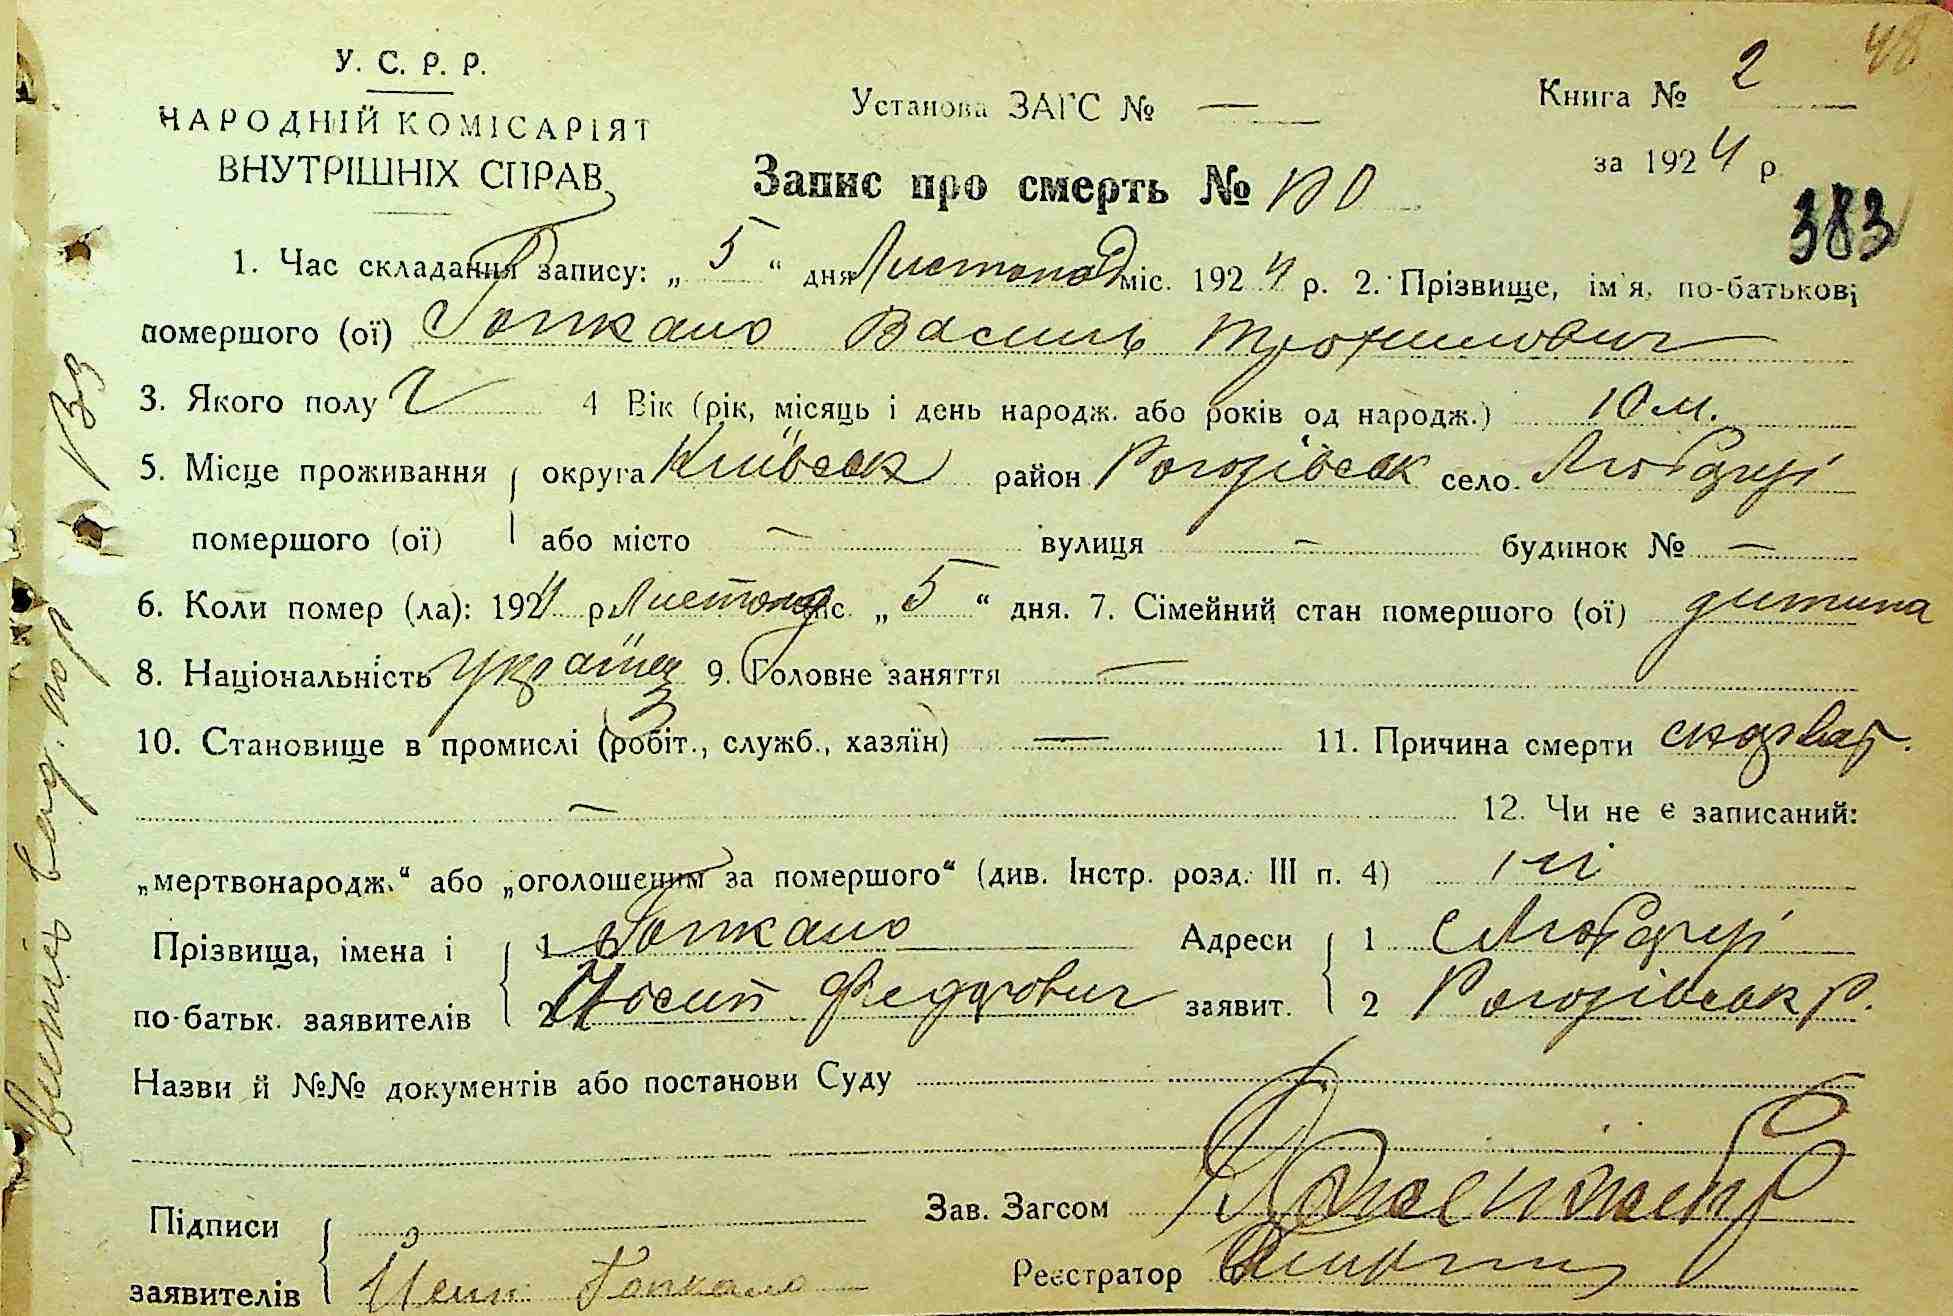 48
У. С. Р. Р.
НАРОДНІЙ КОМІСАРІЯТ
ВНУТРІШНІХ СПРАВ
Установа ЗАГС № —
Книга № 2
за 1924 р.
Запис про смерть №
383
1. Час складання запису: „ 5 “ дня Листопад міс. 1924 р. 2. Прізвище, ім'я, по-батькові
помершого (ої) Гопкало Василь Трохимович
3. Якого полу Ч 4 Вік (рік, місяць і день народж. або років од народж.) 10 м.
5. Місце проживання округа Київськ район Рогозівськ село Любарці
помершого (ої) або місто — вулиця — будинок № —
6. Коли помер (ла): 1924 р. Листопад міс. „ 5 “ дня. 7. Сімейний стан помершого (ої) дитина
8. Національність україн 9. Головне заняття —
10. Становище в промислі (робіт., служб., хазяїн) — 11. Причина смерти
— 12. Чи не є записаний:
„мертвонародж.“ або „оголошеним за помершого“ (див. Інстр. розд. III п. 4) ні
Прізвища, імена і 1 Гопкало Адреси 1 с Любарці
по-батьк. заявителів 2 Йосип Федорович заявит. 2 Рогозівськ р.
Назви й №№ документів або постанови Суду
Підписи Зав. Загсом
заявителів Йсип Гопкало Реєстратор